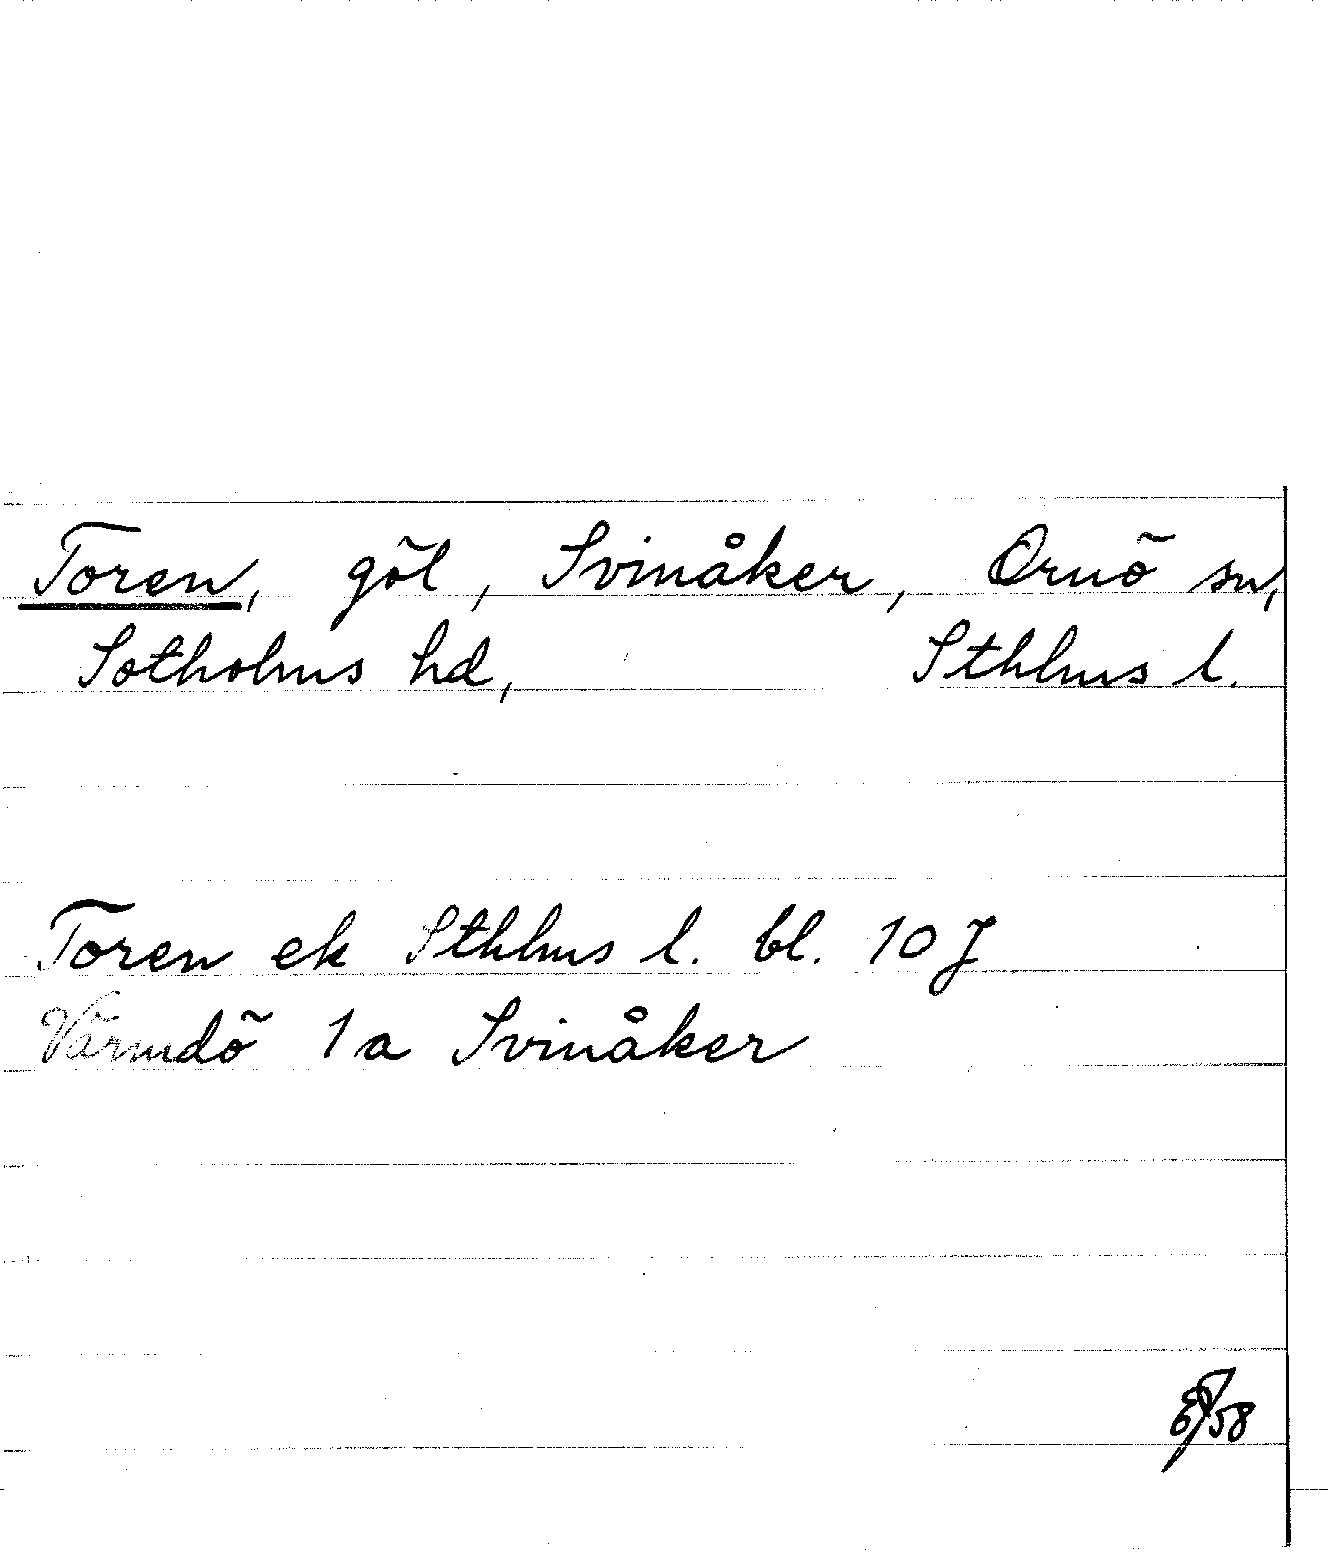 Toren, göl, Svinåker, Ornö sn,
Sotholms hd, Sthlms l.
Toren ek Sthlms l. bl. 10 J
Värmdö 1a Svinåker